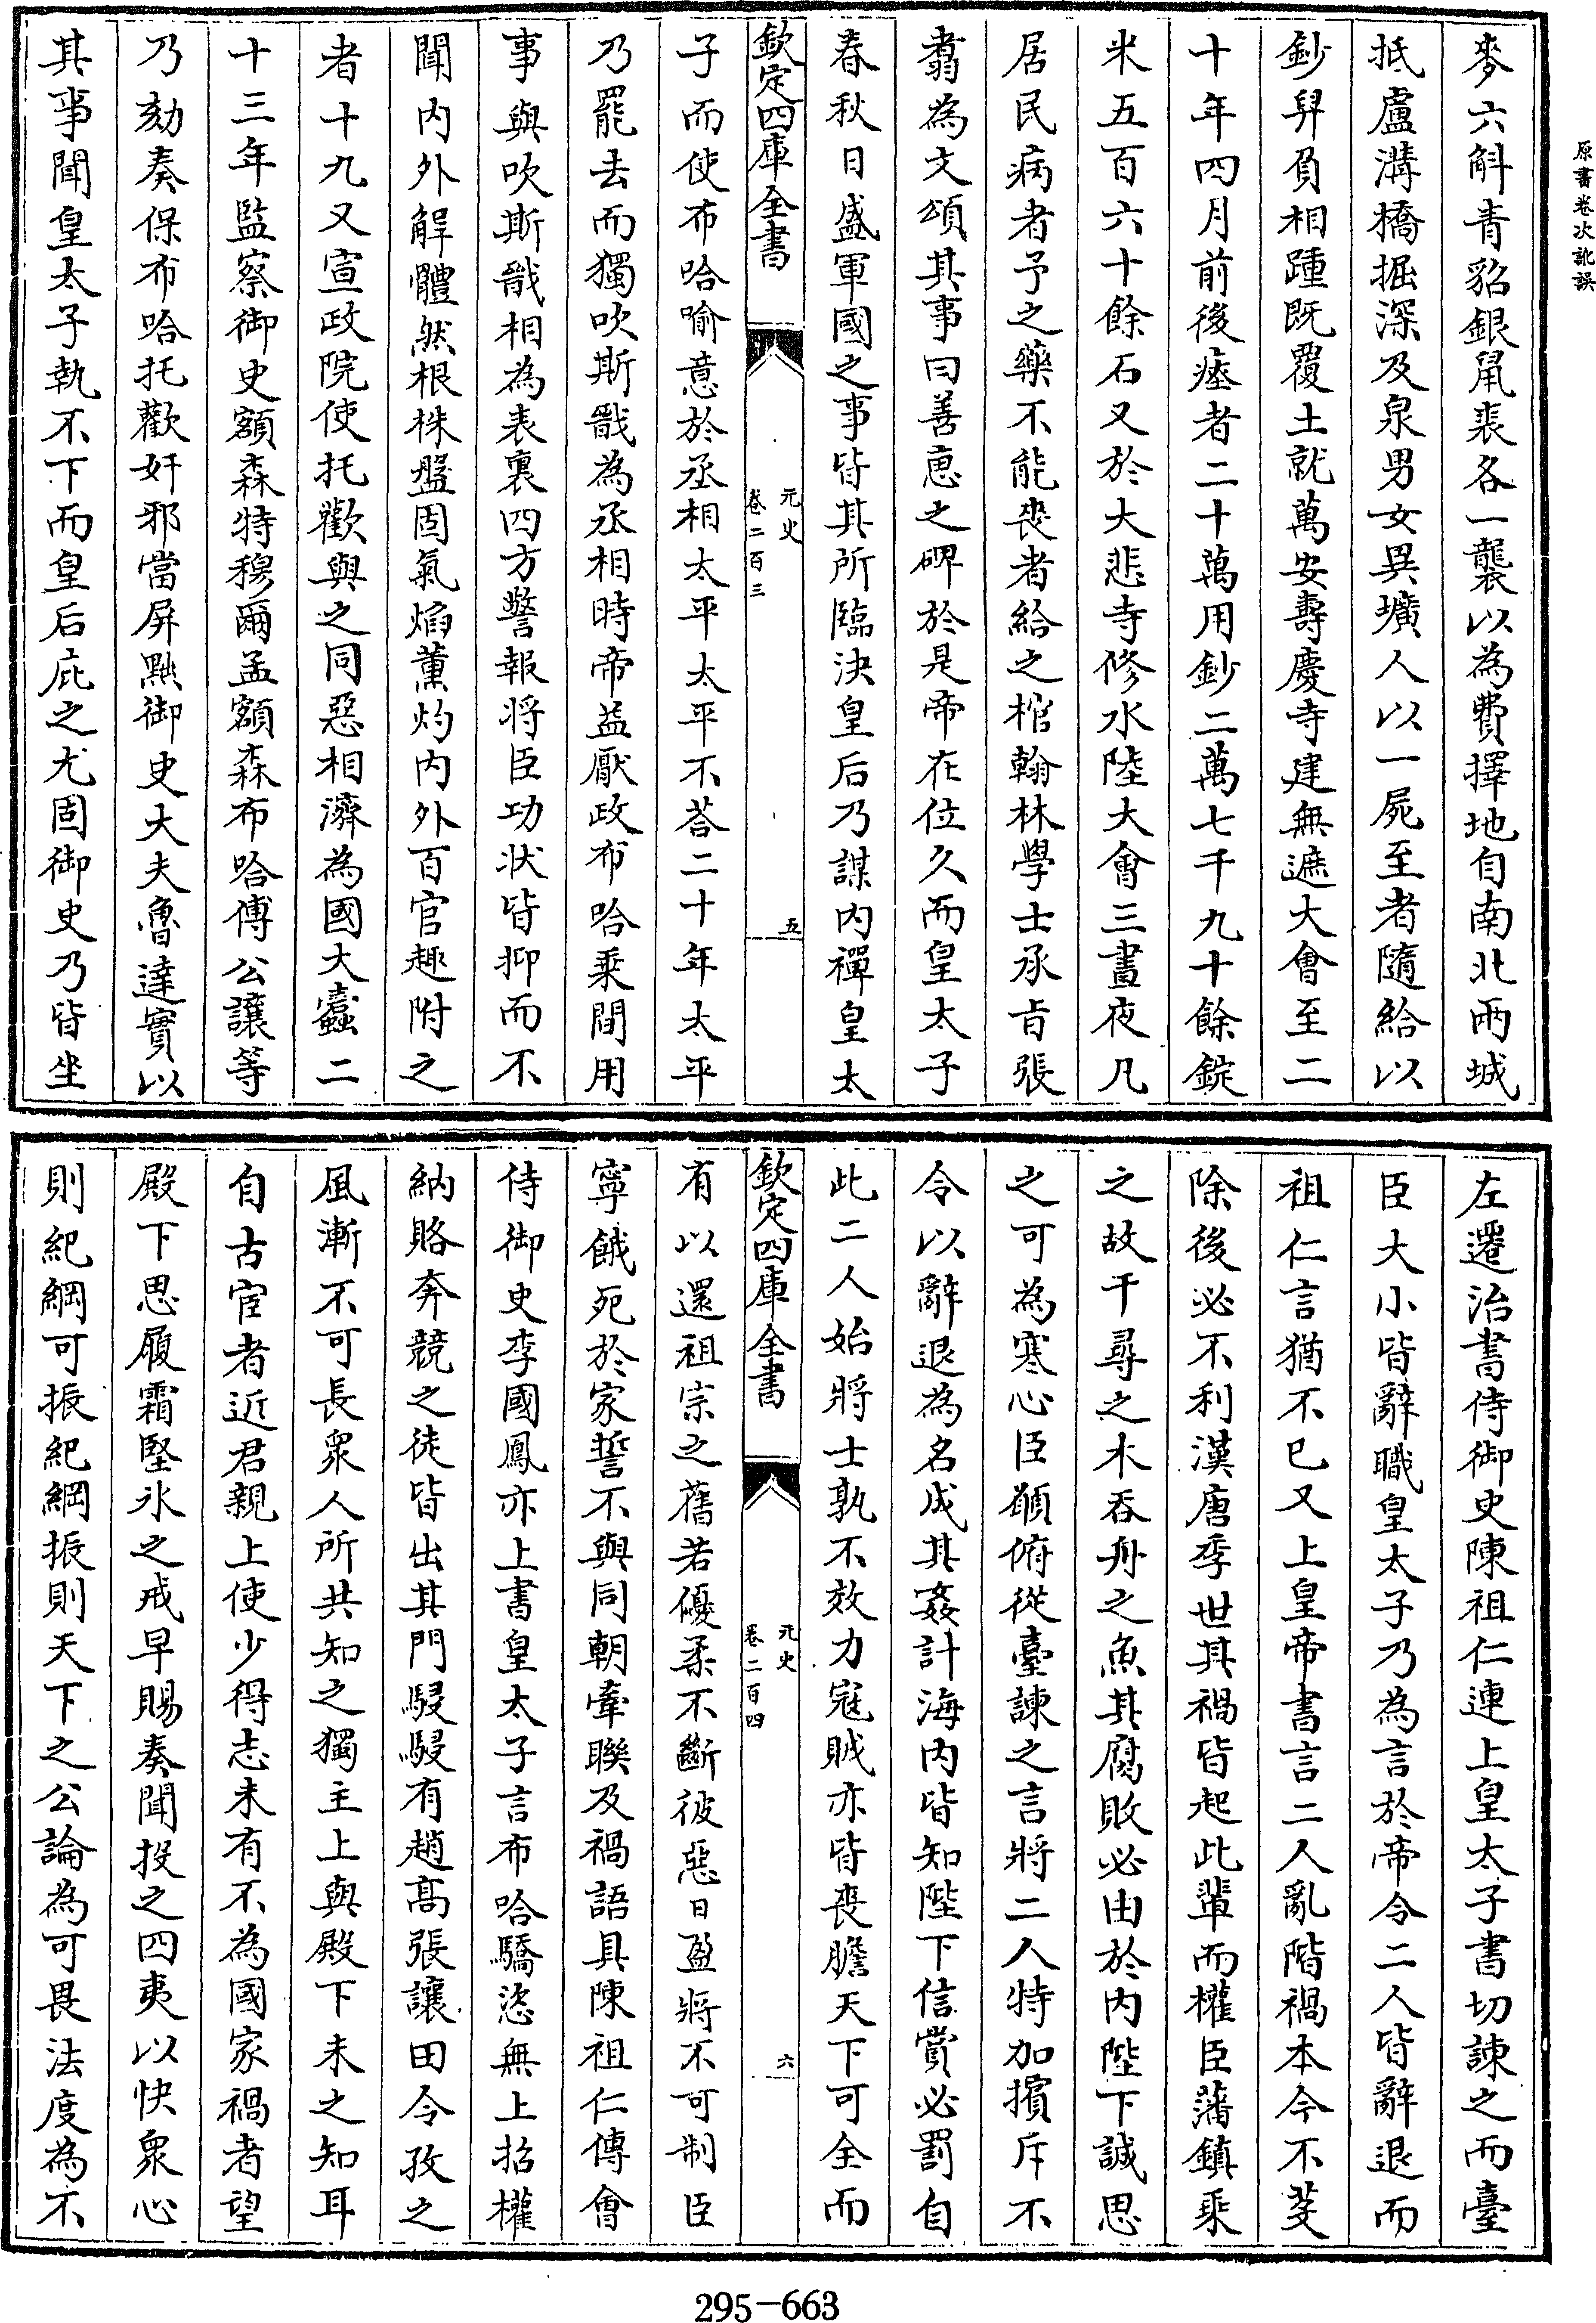 原書卷次訛誤
麥六斛青貂銀鼠裘各一襲以為費擇地自南北兩城
抵盧溝橋掘深及泉男女異壙人以一屍至者隨給以
鈔舁負相踵既覆土就萬安壽慶寺建無遮大會至二
十年四月前後瘞者二十萬用鈔二萬七千九十餘錠
米五百六十餘石又於大悲寺修水陸大會三晝夜凡
居民病者予之藥不能喪者給之棺翰林學士承旨張
翥為文頌其事曰善惠之碑於是帝在位久而皇太子
春秋日盛軍國之事皆其所臨決皇后乃謀內禪皇太
欽定四庫全書
元史
卷二百三
五
子而使布哈喻意於丞相太平太平不荅二十年太平
乃罷去而獨吹斯戩為丞相時帝益厭政布哈乘間用
事與吹斯戩相為表裏四方警報將臣功狀皆抑而不
聞內外解體然根株盤固氣焰薰灼內外百官趣附之
者十九又宣政院使托歡與之同惡相濟為國大蠹二
十三年監察御史額森特穆爾孟額森布哈傅公讓等
乃劾奏保布哈托歡奸邪當屏黜御史大夫魯達實以
其事聞皇太子執不下而皇后庇之尤固御史乃皆坐
左遷治書侍御史陳祖仁連上皇太子書切諫之而臺
臣大小皆辭職皇太子乃為言於帝令二人皆辭退而
祖仁言猶不已又上皇帝書言二人亂階禍本今不芟
除後必不利漢唐季世其禍皆起此輩而權臣藩鎮乘
之故千尋之木吞舟之魚其腐敗必由於內陛下誠思
之可為寒心臣願俯從臺諫之言將二人特加擯斥不
令以辭退為名成其姦計海內皆知陛下信賞必罰自
此二人始將士孰不效力寇賊亦皆喪膽天下可全而
欽定四庫全書
元史
卷二百四
六
有以還祖宗之舊若優柔不斷彼惡日盈將不可制臣
寧餓死於家誓不與同朝牽聯及禍語具陳祖仁傳會
侍御史李國鳳亦上書皇太子言布哈驕恣無上招權
納賂奔競之徒皆出其門駸駸有趙高張讓田令孜之
風漸不可長衆人所共知之獨主上與殿下未之知耳
自古宦者近君親上使少得志未有不為國家禍者望
殿下思履霜堅冰之戒早賜奏聞投之四夷以快衆心
則紀綱可振紀綱振則天下之公論為可畏法度為不
295-663